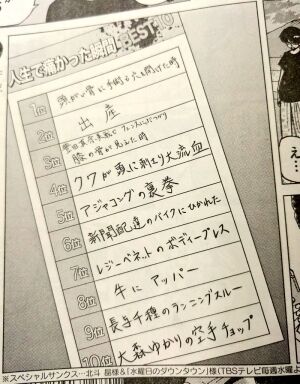 人生で痛かった瞬間BEST10
1位 頭がい骨に手術で穴を開けた時
2位 出産
3位 豊田真奈美に
膝の骨が見えた時
4位 クワが頭に刺さり大流血
5位 アジャコングの裏拳
6位 新聞配達のバイクにひかれた
7位 レジーベネットのボディープレス
8位 牛にアッパー
9位 長与千種のランニングスルー
10位 大森ゆかりの空手チョップ
え…
※スペシャルサンクス…北斗 晶様&「水曜日のダウンタウン」様(TBSテレビ毎週水曜よ